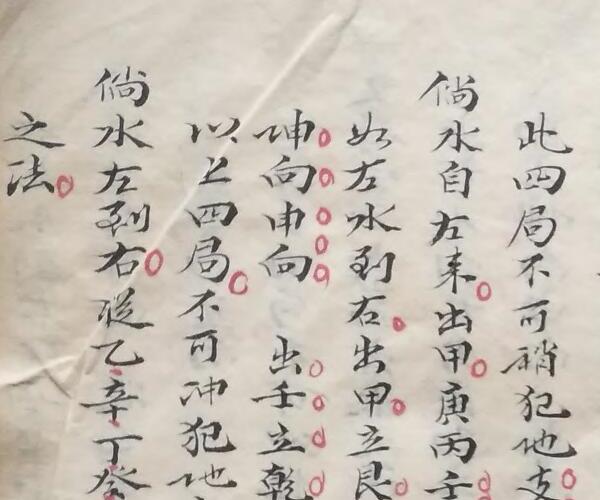 此四局不可稍犯地支
倘水自左来出甲庚丙壬
如左水到右出甲立艮
坤向申向 出壬立乾
以上四局不可冲犯地
倘水左到右从乙辛丁癸
之法